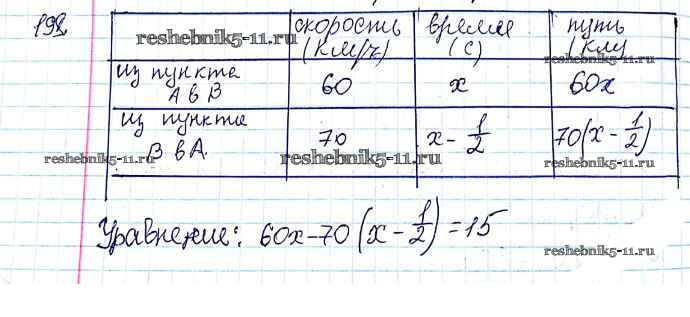 198.
скорость (км/ч) время (с) путь (км
из пункта А в В 60 x 60x
из пункта В в А. 70 x - 1/2 70(x - 1/2)
Уравнение: 60x-70(x - 1/2)=15
reshebnik5-11.ru
reshebnik5-11.ru
reshebnik5-11.ru
reshebnik5-11.ru
reshebnik5-11.ru
reshebnik5-11.ru